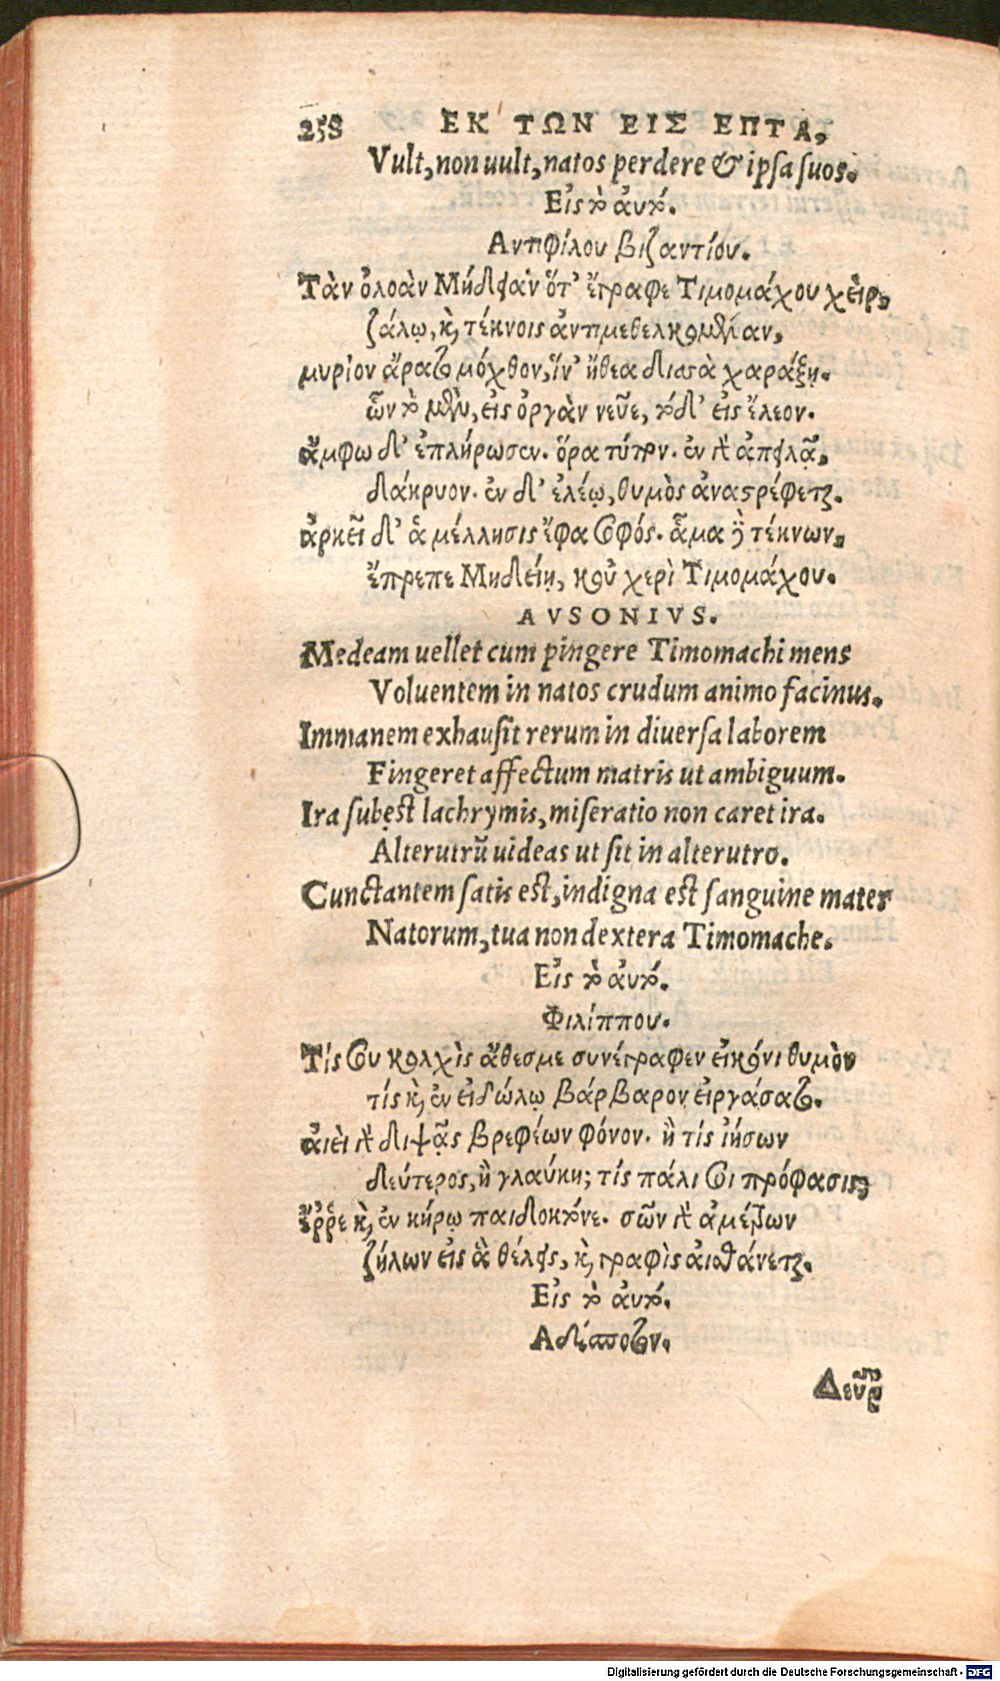 258 ΕΚ ΤΩΝ ΕΙΣ ΕΠΤΑ,
Vult, non uult, natos perdere & ipsa suos.
Εἰς τὸ αὐτό.
Αντιφίλου βιζαντίου.
Τὰν ὀλοὰν Μήδειαν ὅτ' ἔγραφε Τιμομάχου χεὶρ,
ζάλῳ, καὶ τέκνοις ἀντιμεθελκομέναν,
μυρίον ἄρατο μόχθον, ἵν' ἤθεα δισσὰ χαράξῃ.
ὧν τὸ μὲν, εἰς ὀργὰν νεῦε, τὸ δ' εἰς ἔλεον.
ἄμφω δ' ἐπλήρωσεν. ὅρα τύπον. ἐν γὰρ ἀπειλᾷ,
δάκρυον. ἐν δ' ἐλέῳ, θυμὸς ἀναστρέφεται.
ἀρκεῖ δ' ἁ μέλλησις ἔφα σοφός. αἷμα δὲ τέκνων,
ἔπρεπε Μηδείῃ, κοὐ χερὶ Τιμομάχου.
AVSONIVS.
Medeam uellet cum pingere Timomachi mens
Voluentem in natos crudum animo facinus.
Immanem exhausit rerum in diuersa laborem
Fingeret affectum matris ut ambiguum.
Ira subest lachrymis, miseratio non caret ira.
Alterutrũ uideas ut sit in alterutro.
Cunctantem satis est, indigna est sanguine mater
Natorum, tua non dextera Timomache.
Εἰς τὸ αὐτό.
Φιλίππου.
Τίς σου κολχὶς ἄθεσμε συνέγραφεν εἰκόνι θυμὸν
τίς καὶ ἐν εἰδώλῳ βάρβαρον εἰργάσατο.
αἰεὶ γὰρ διψᾷς βρεφέων φόνον. ἢ τίς ἰήσων
δεύτερος, ἢ γλαύκη; τίς πάλι σοι πρόφασις;
ἔῤῥε καὶ ἐν κήρῳ παιδοκτόνε. σῶν γὰρ ἀμέτρων
ζήλων εἰς ἃ θέλεις, καὶ γραφὶς αἰσθάνεται.
Εἰς τὸ αὐτό.
Αδέσποτον.
Δεῦρ
Digitalisierung gefördert durch die Deutsche Forschungsgemeinschaft - DFG